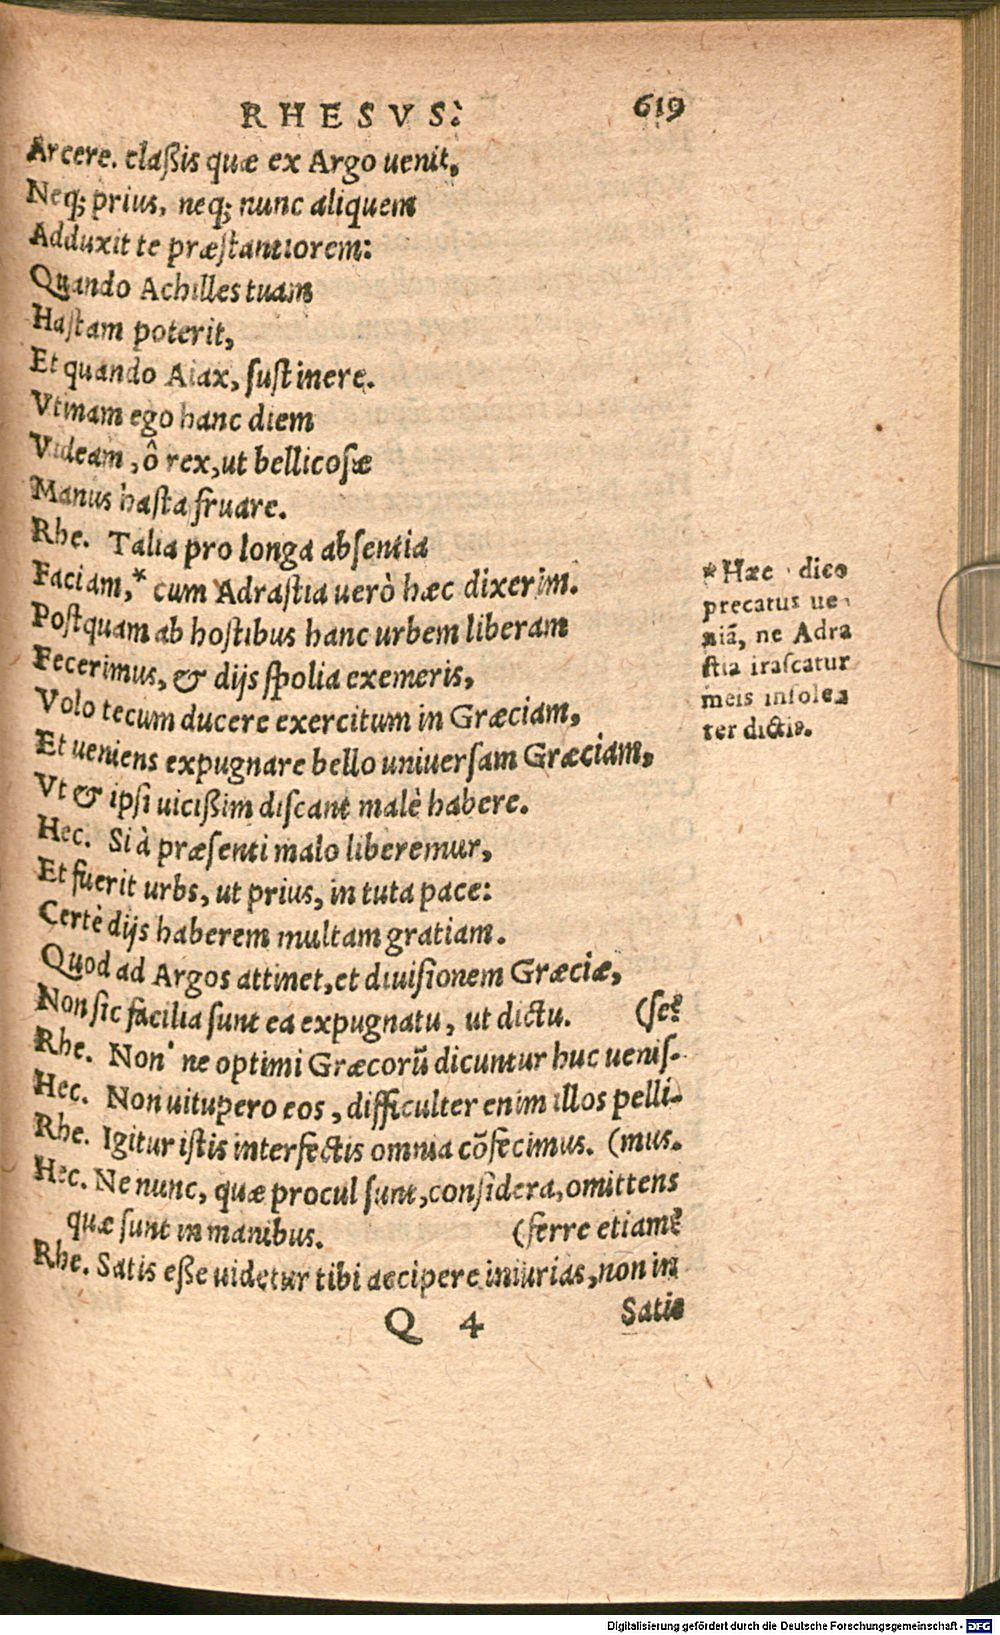 RHESVS. 619
Arcere. claßis quæ ex Argo uenit,
Neq; prius, neq; nunc aliquem
Adduxit te præstantiorem:
Quando Achilles tuam
Hastam poterit,
Et quando Aiax, sustinere.
Vtinam ego hanc diem
Videam, ô rex, ut bellicosæ
Manus hasta fruare.
Rhe. Talia pro longa absentia
Faciam,* cum Adrastia uerò hæc dixerim.
Postquam ab hostibus hanc urbem liberam
Fecerimus, & dijs spolia exemeris,
Volo tecum ducere exercitum in Græciam,
Et ueniens expugnare bello uniuersam Græciam,
Vt & ipsi uicißim discant malè habere.
Hec. Si à præsenti malo liberemur,
Et fuerit urbs, ut prius, in tuta pace:
Certè dijs haberem multam gratiam.
Quod ad Argos attinet, et diuisionem Græciæ,
Non sic facilia sunt ea expugnatu, ut dictu. (se?
Rhe. Non' ne optimi Græcorũ dicuntur huc uenis-
Hec. Non uitupero eos, difficulter enim illos pelli-
Rhe. Igitur istis interfectis omnia cõfecimus. (mus.
Hec. Ne nunc, quæ procul sunt, considera, omittens
quæ sunt in manibus. (ferre etiam?
Rhe. Satis eße uidetur tibi accipere iniurias, non in
Q 4 Satis
* Hæc dico
precatus ue
niã, ne Adra
stia irascatur
meis insolen
ter dictis.
Digitalisierung gefördert durch die Deutsche Forschungsgemeinschaft - DFG